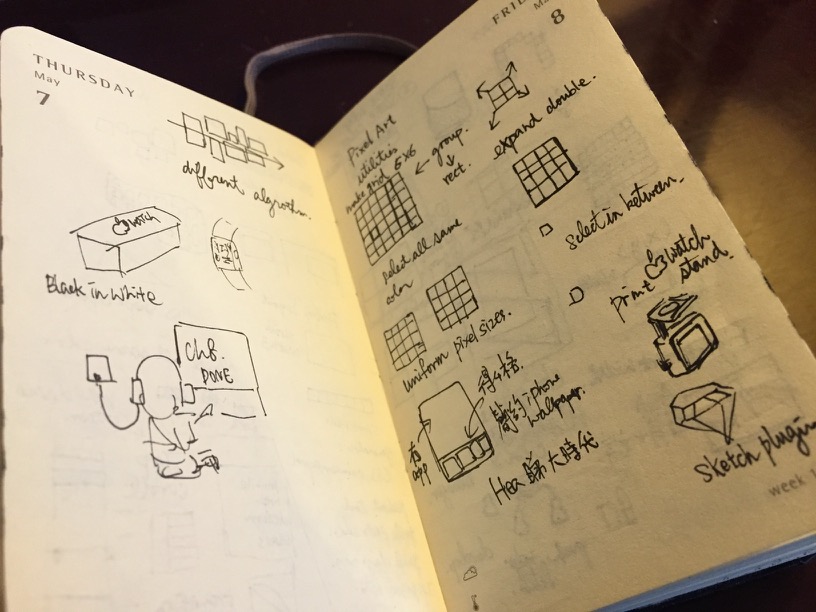 THURSDAY
May
7
different algorithm.
WATCH
Black in White
Ch8.
DONE
8
Pixel Art
utilities
make grid 6x6
← group.
↓
rect.
expand double.
select all same
color
select in between.
uniform pixel sizes.
print WATCH
stand.
得4格.
簡約iPhone
Wallpaper.
app
Hea 睇大時代
sketch plugin
week 1